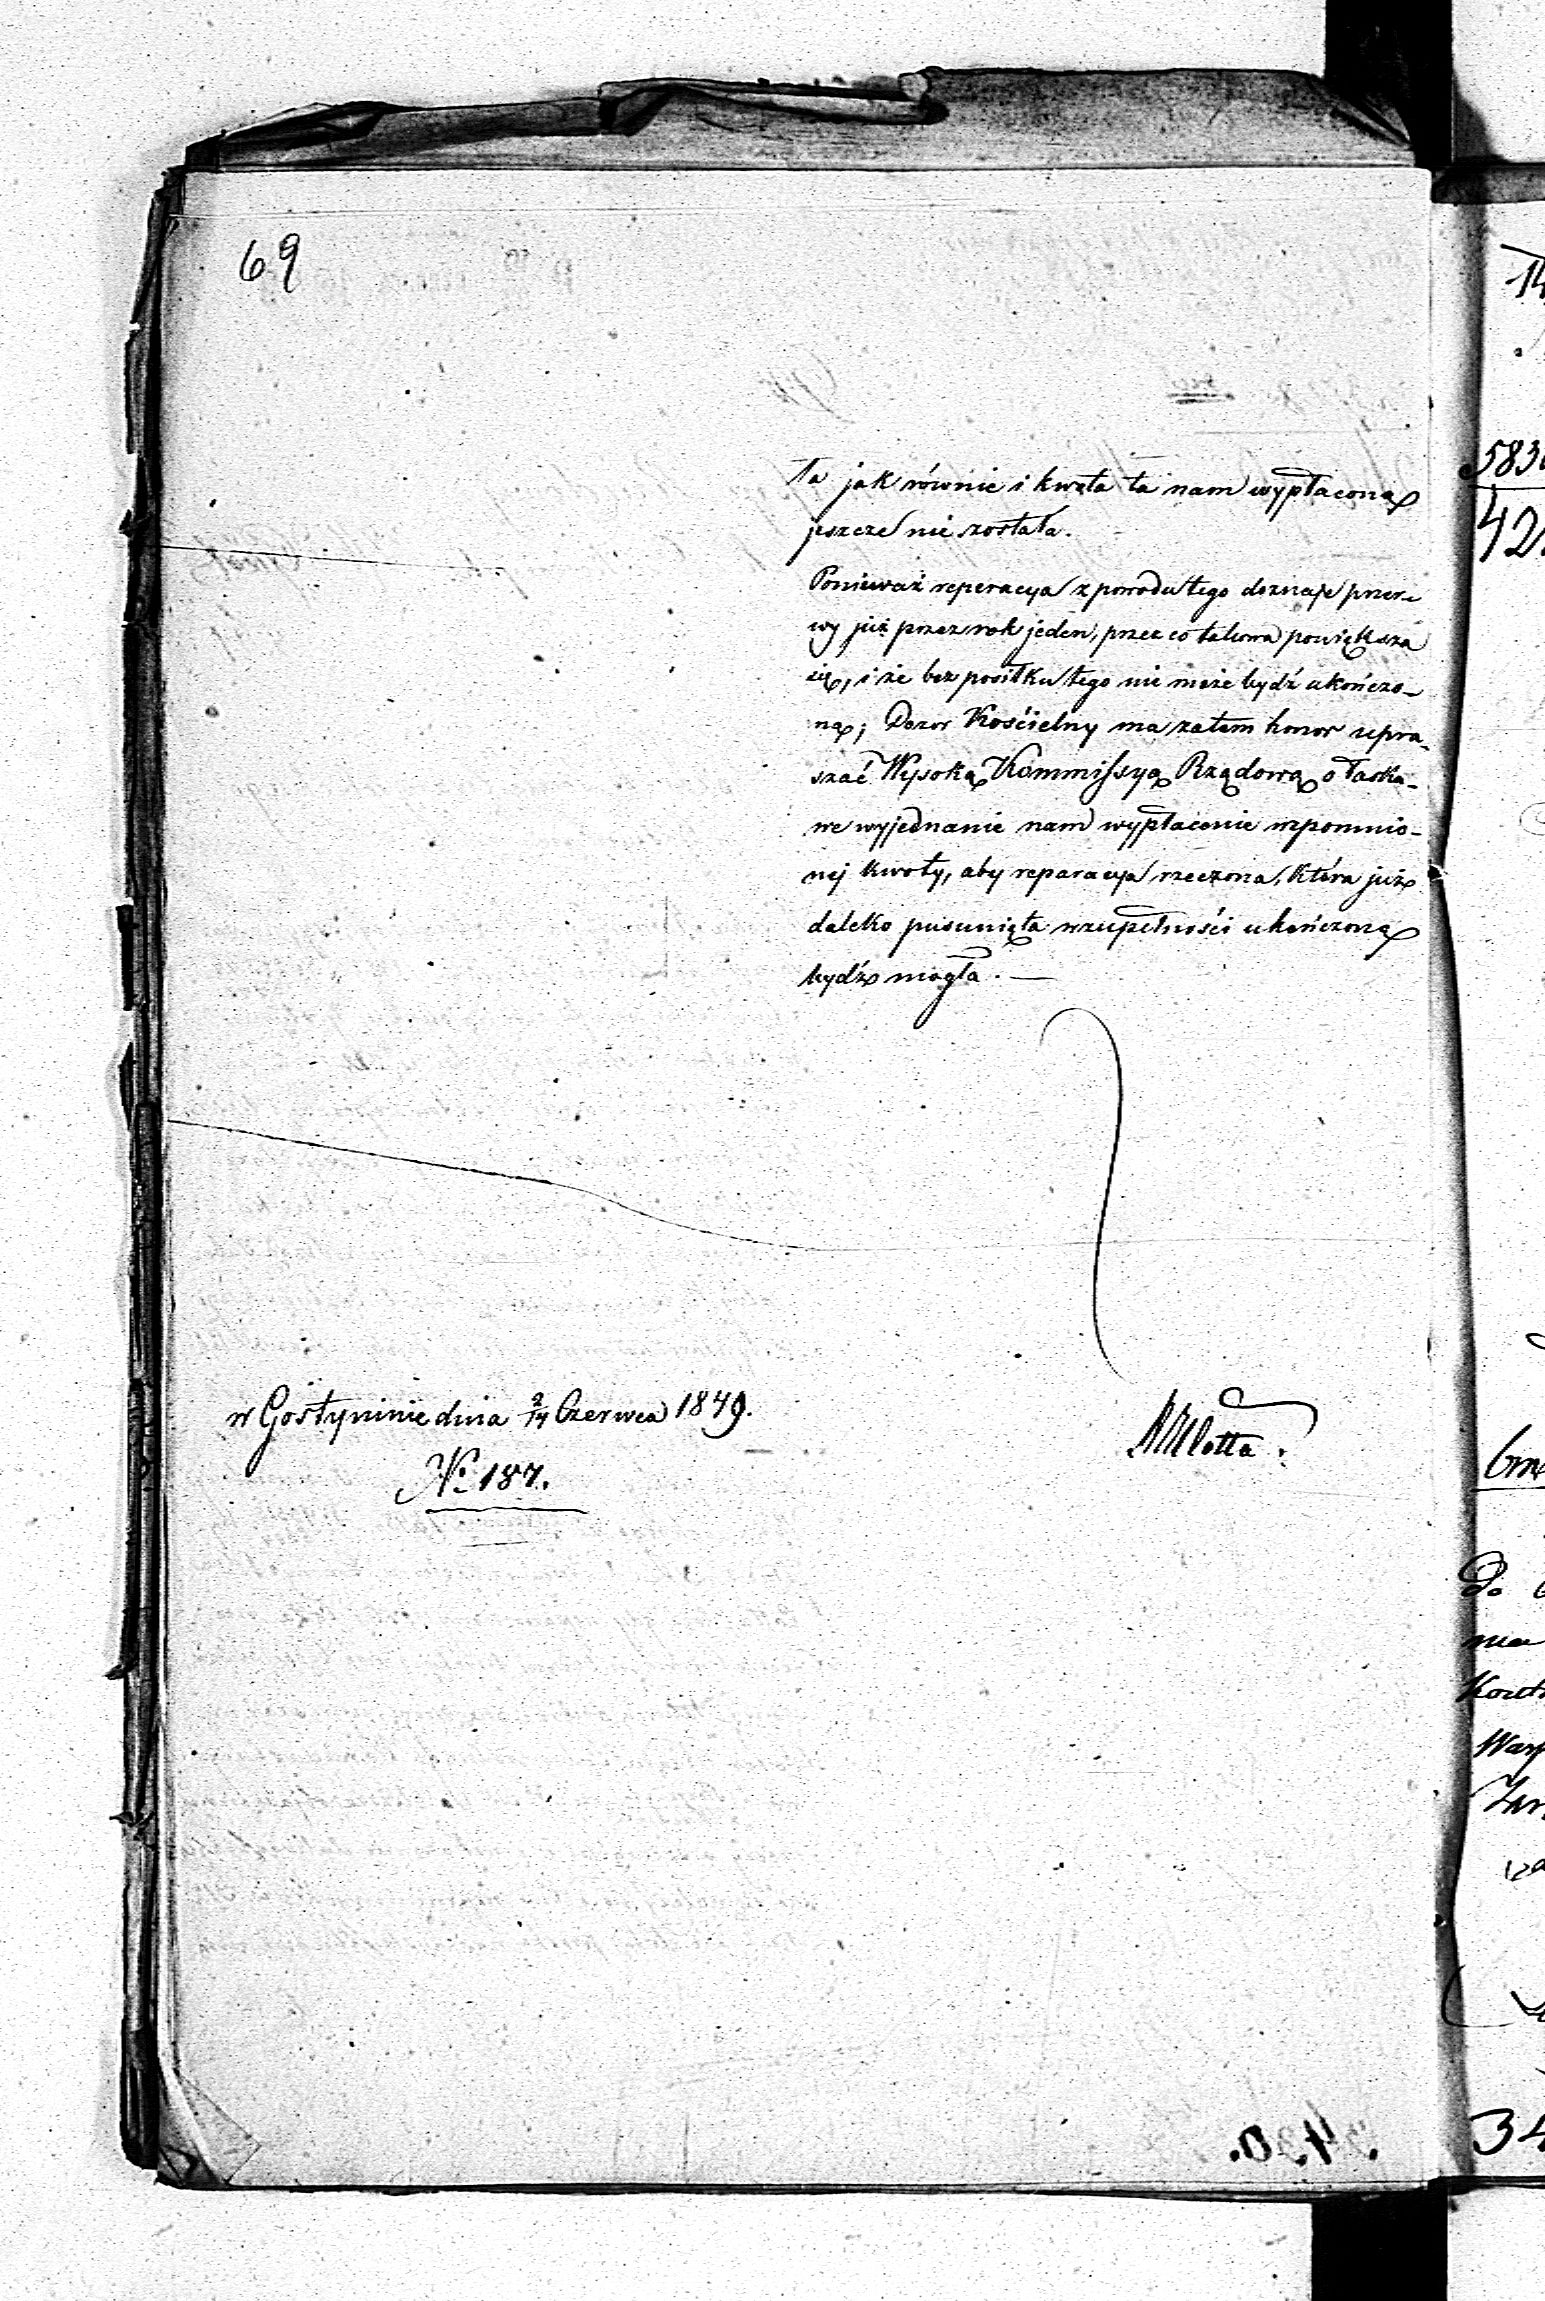 69
ta jak równie i kwota ta nam wypłaconą
jeszcze nie została.
Ponieważ reperacya z powodu tego doznaje przer-
wy już przez rok jeden, przez co takowa powiększa
się, i że bez posiłku tego nie może bydź ukończo-
ną; Dozor Kościelny ma zatem honor upra-
szać Wysoką Kommissyą Rządową o łaska-
we wyjednanie nam wypłacenie wspomnio-
nej kwoty, aby reparacya rzeczona, która już
daleko pusunięta wzupełności ukończoną
bydź mogła. —
w Gostyninie dnia 2/14 Czerwca 1849.
No 187.
583
42
Do
Warp
34